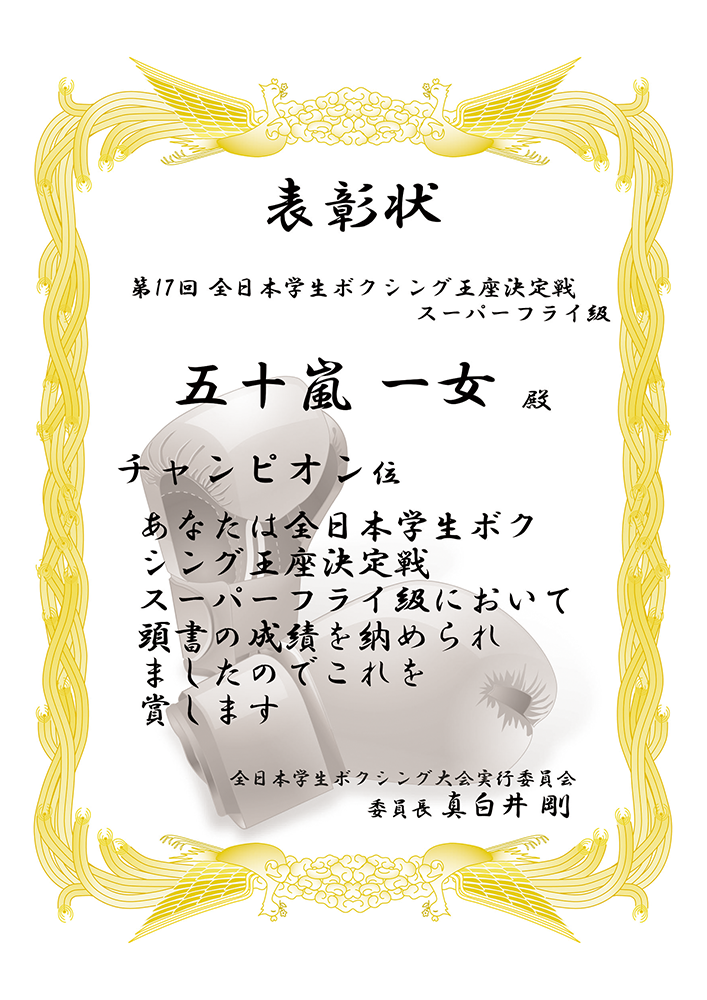 表彰状
第17回 全日本学生ボクシング王座決定戦
スーパーフライ級
五十嵐 一女 殿
チャンピオン位
あなたは全日本学生ボク
シング王座決定戦
スーパーフライ級において
頭書の成績を納められ
ましたのでこれを
賞します
全日本学生ボクシング大会実行委員会
委員長 真白井 剛